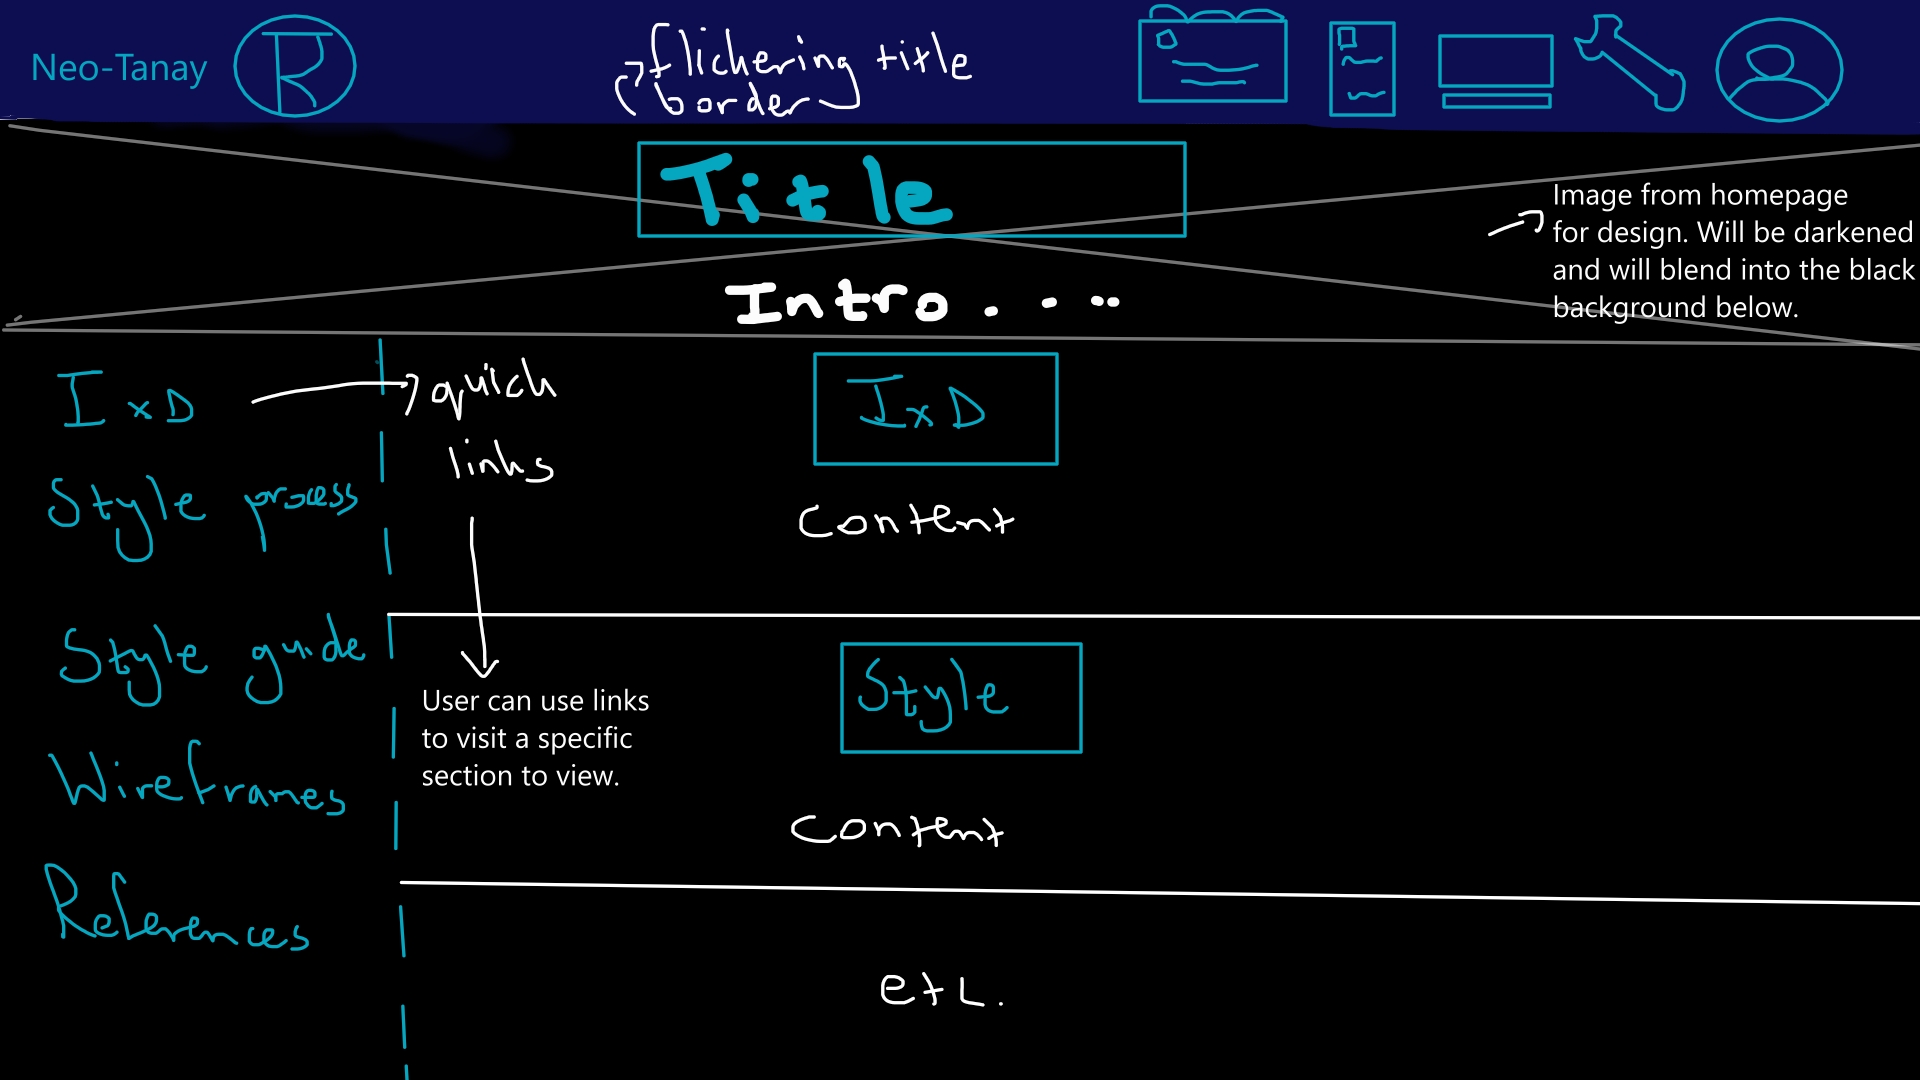 Neo-Tanay
flickering title
border
Title
Image from homepage
for design. Will be darkened
and will blend into the black
background below.
Intro. . ..
IxD
Style process
Style guide
Wireframes
References
quick
links
User can use links
to visit a specific
section to view.
IxD
Content
Style
Content
etc.